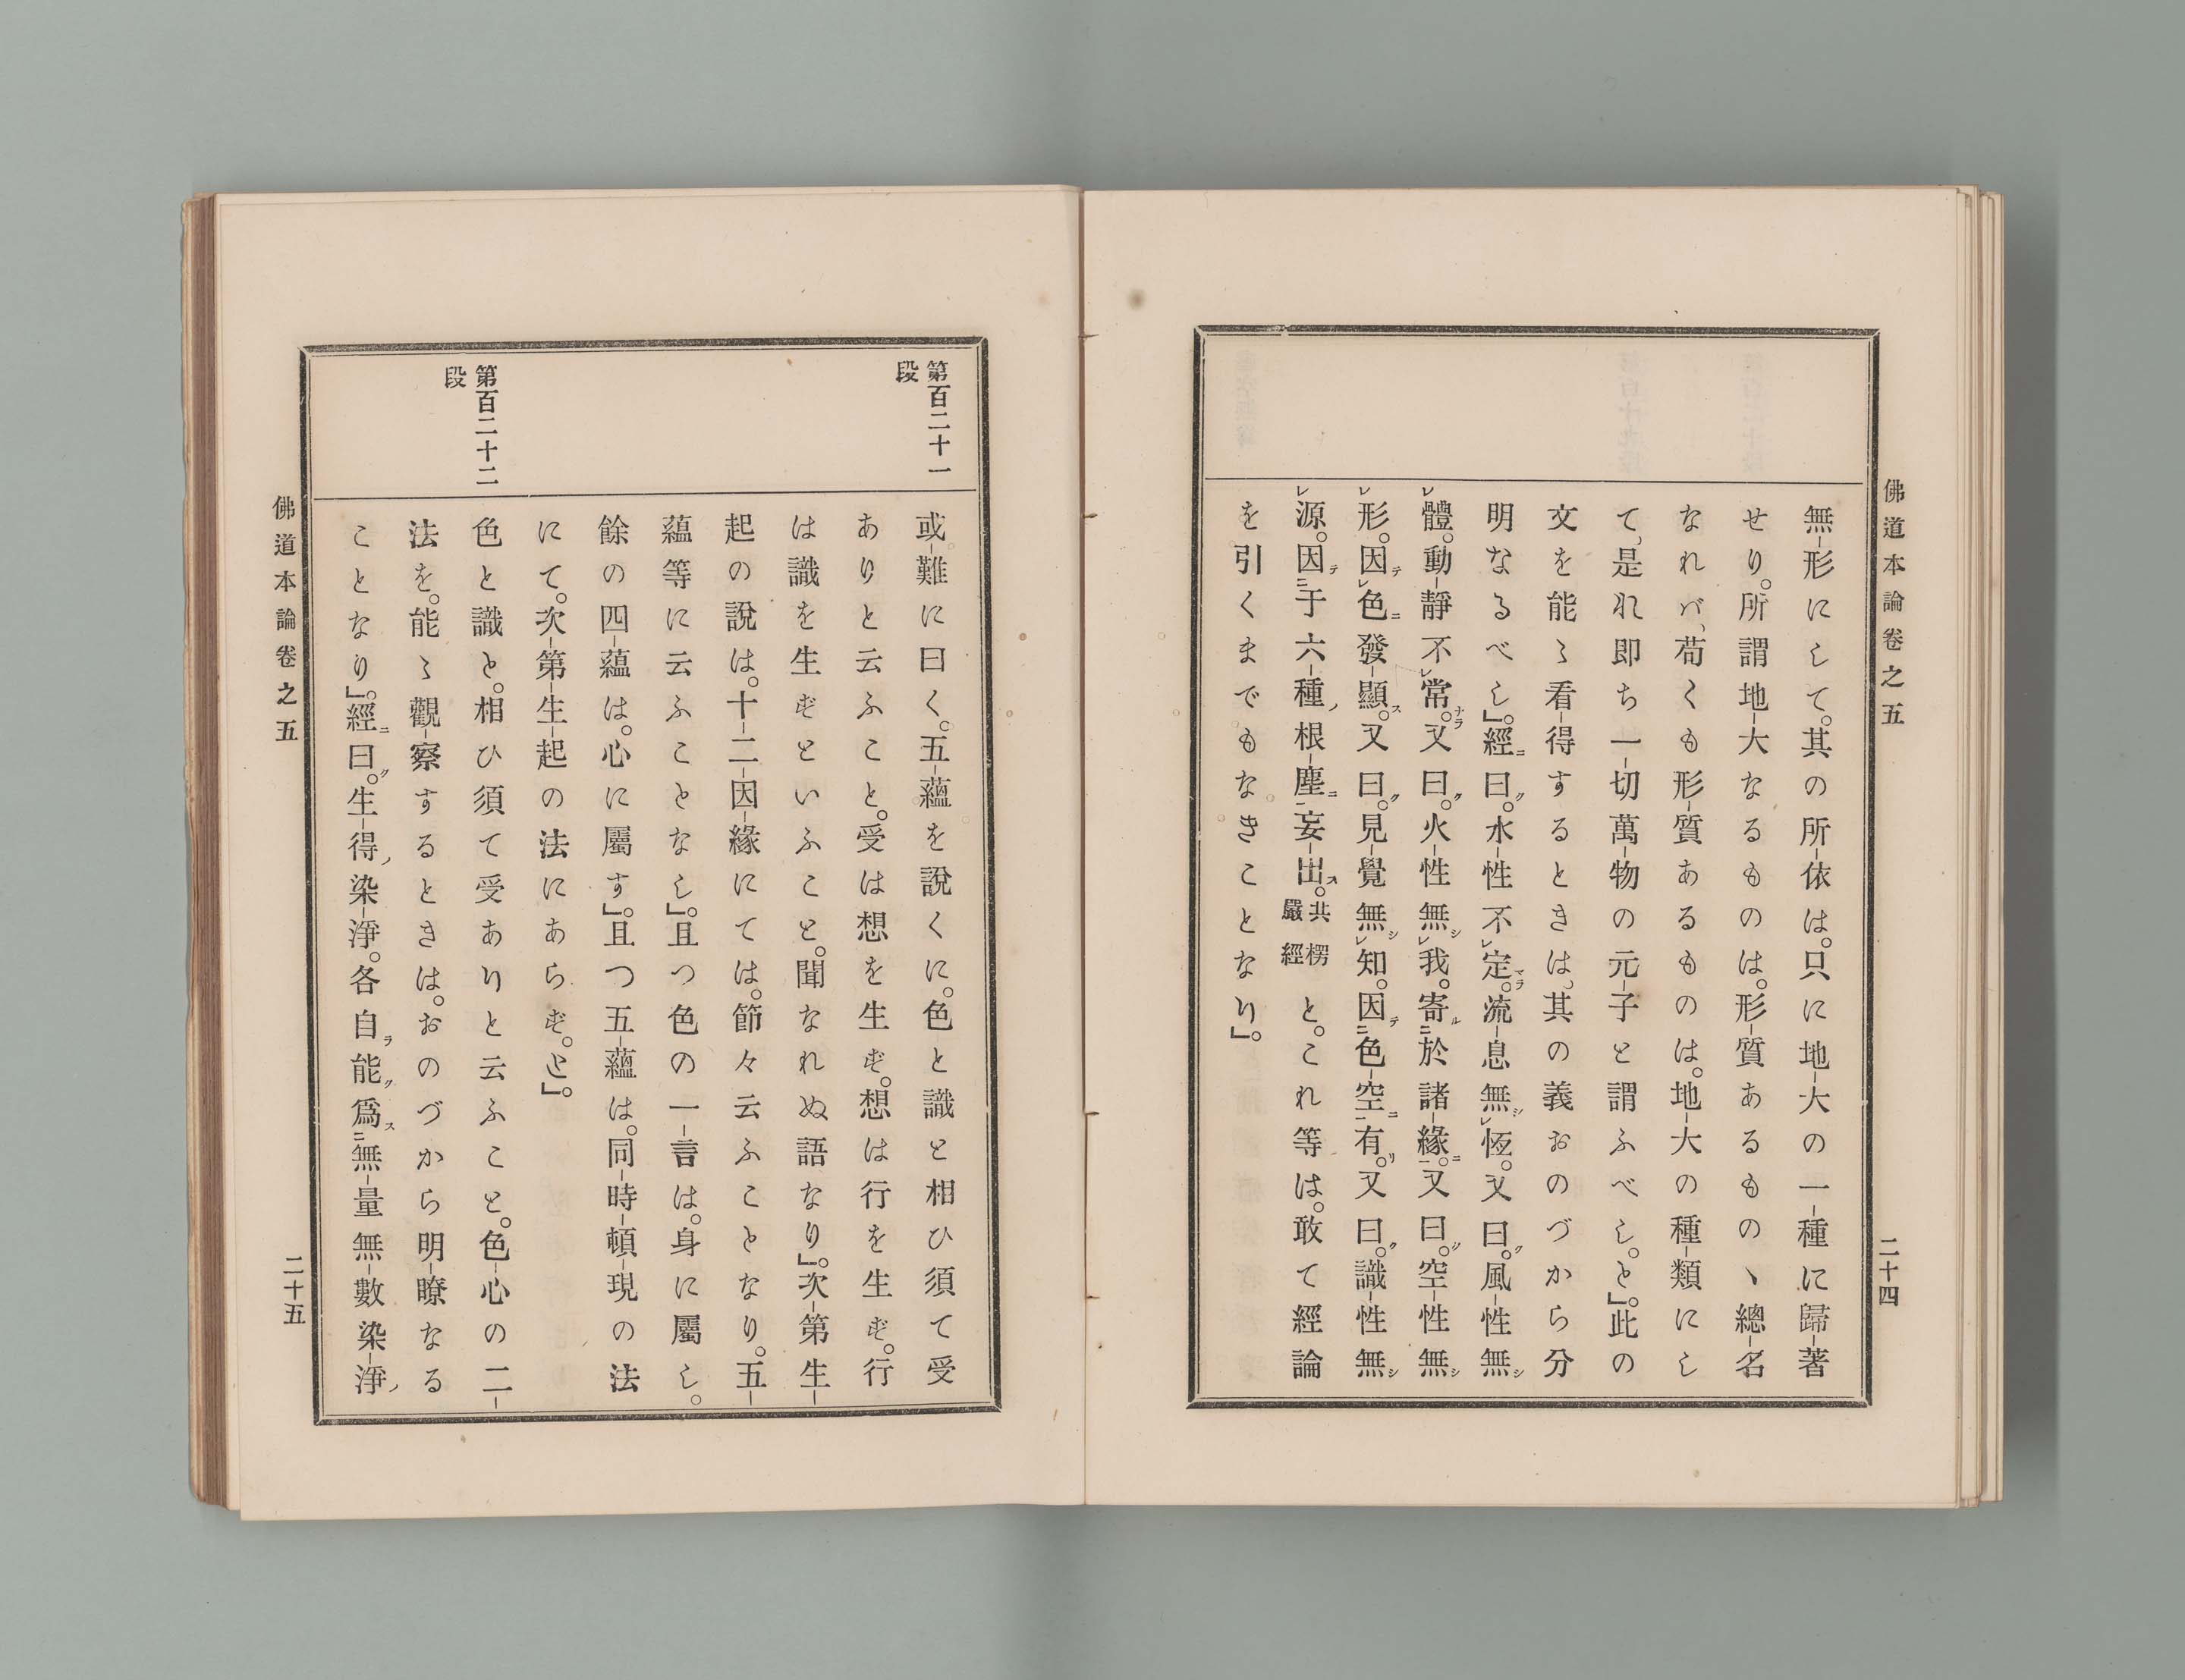 佛道本論卷之五
二十四
無形にして。其の所依は。只に地大の一種に歸著
せり。所謂地大なるものは。形質あるものゝ總名
なれバ、苟くも形質あるものは。地大の種類にし
て、是れ即ち一切萬物の元子と謂ふべし。と」。此の
文を能く看得するときは、其の義おのづから分
明なるべし」。經ニ曰ク。水性不レ定マラ。流息無シレ恆。又曰ク。風性無シ
レ體。動靜不レ常ナラ。又曰ク。火性無シレ我。寄ル二於諸緣ニ一。又曰ク。空性無シ
レ形。因テレ色ニ發顯ス。又曰ク。見覺無シレ知。因テ二色空ニ一有リ。又曰ク。識性無シ
レ源。因テ二于六種ノ根塵ニ一妄出ス。共楞嚴經と。これ等は。敢て經論
を引くまでもなきことなり」。
第百二十一段
或難に曰く。五蘊を說くに。色と識と相ひ須て受
ありと云ふこと。受は想を生ず。想は行を生ず。行
は識を生ずといふこと。聞なれぬ語なり」。次第生
起の說は。十二因緣にては。節々云ふことなり。五
蘊等に云ふことなし」。且つ色の一言は。身に屬し。
餘の四蘊は。心に屬す」。且つ五蘊は。同時頓現の法
にて。次第生起の法にあらず。と」。
第百二十二段
色と識と。相ひ須て受ありと云ふこと。色心の二
法を。能く觀察するときは。おのづから明瞭なる
ことなり」。經ニ曰ク。生得ノ染淨。各自ラ能ク爲ス二無量無數染淨ノ
佛道本論卷之五
二十五